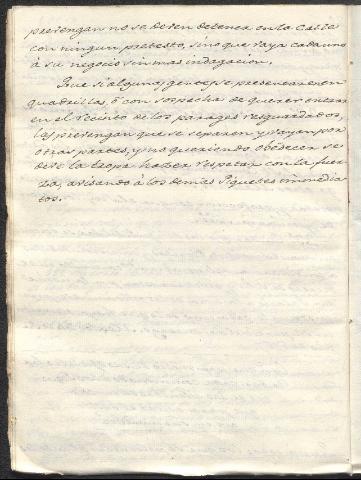 prevengan no se deven detener en la Calle
con ningun pretesto, sino que vaya cada uno
á su negocio sin mas indagacion.
Que si algunas gentes se presentaren en
quadrillas, ó con sospecha de querer entrar
en el recinto de los parages resguardados,
las prevengan que se separen y vayan por
otras partes, y no queriendo obedecer se
deve la tropa hazer respetar con la fuer
za, avisando á los demas Piquetes inmedia
tos.